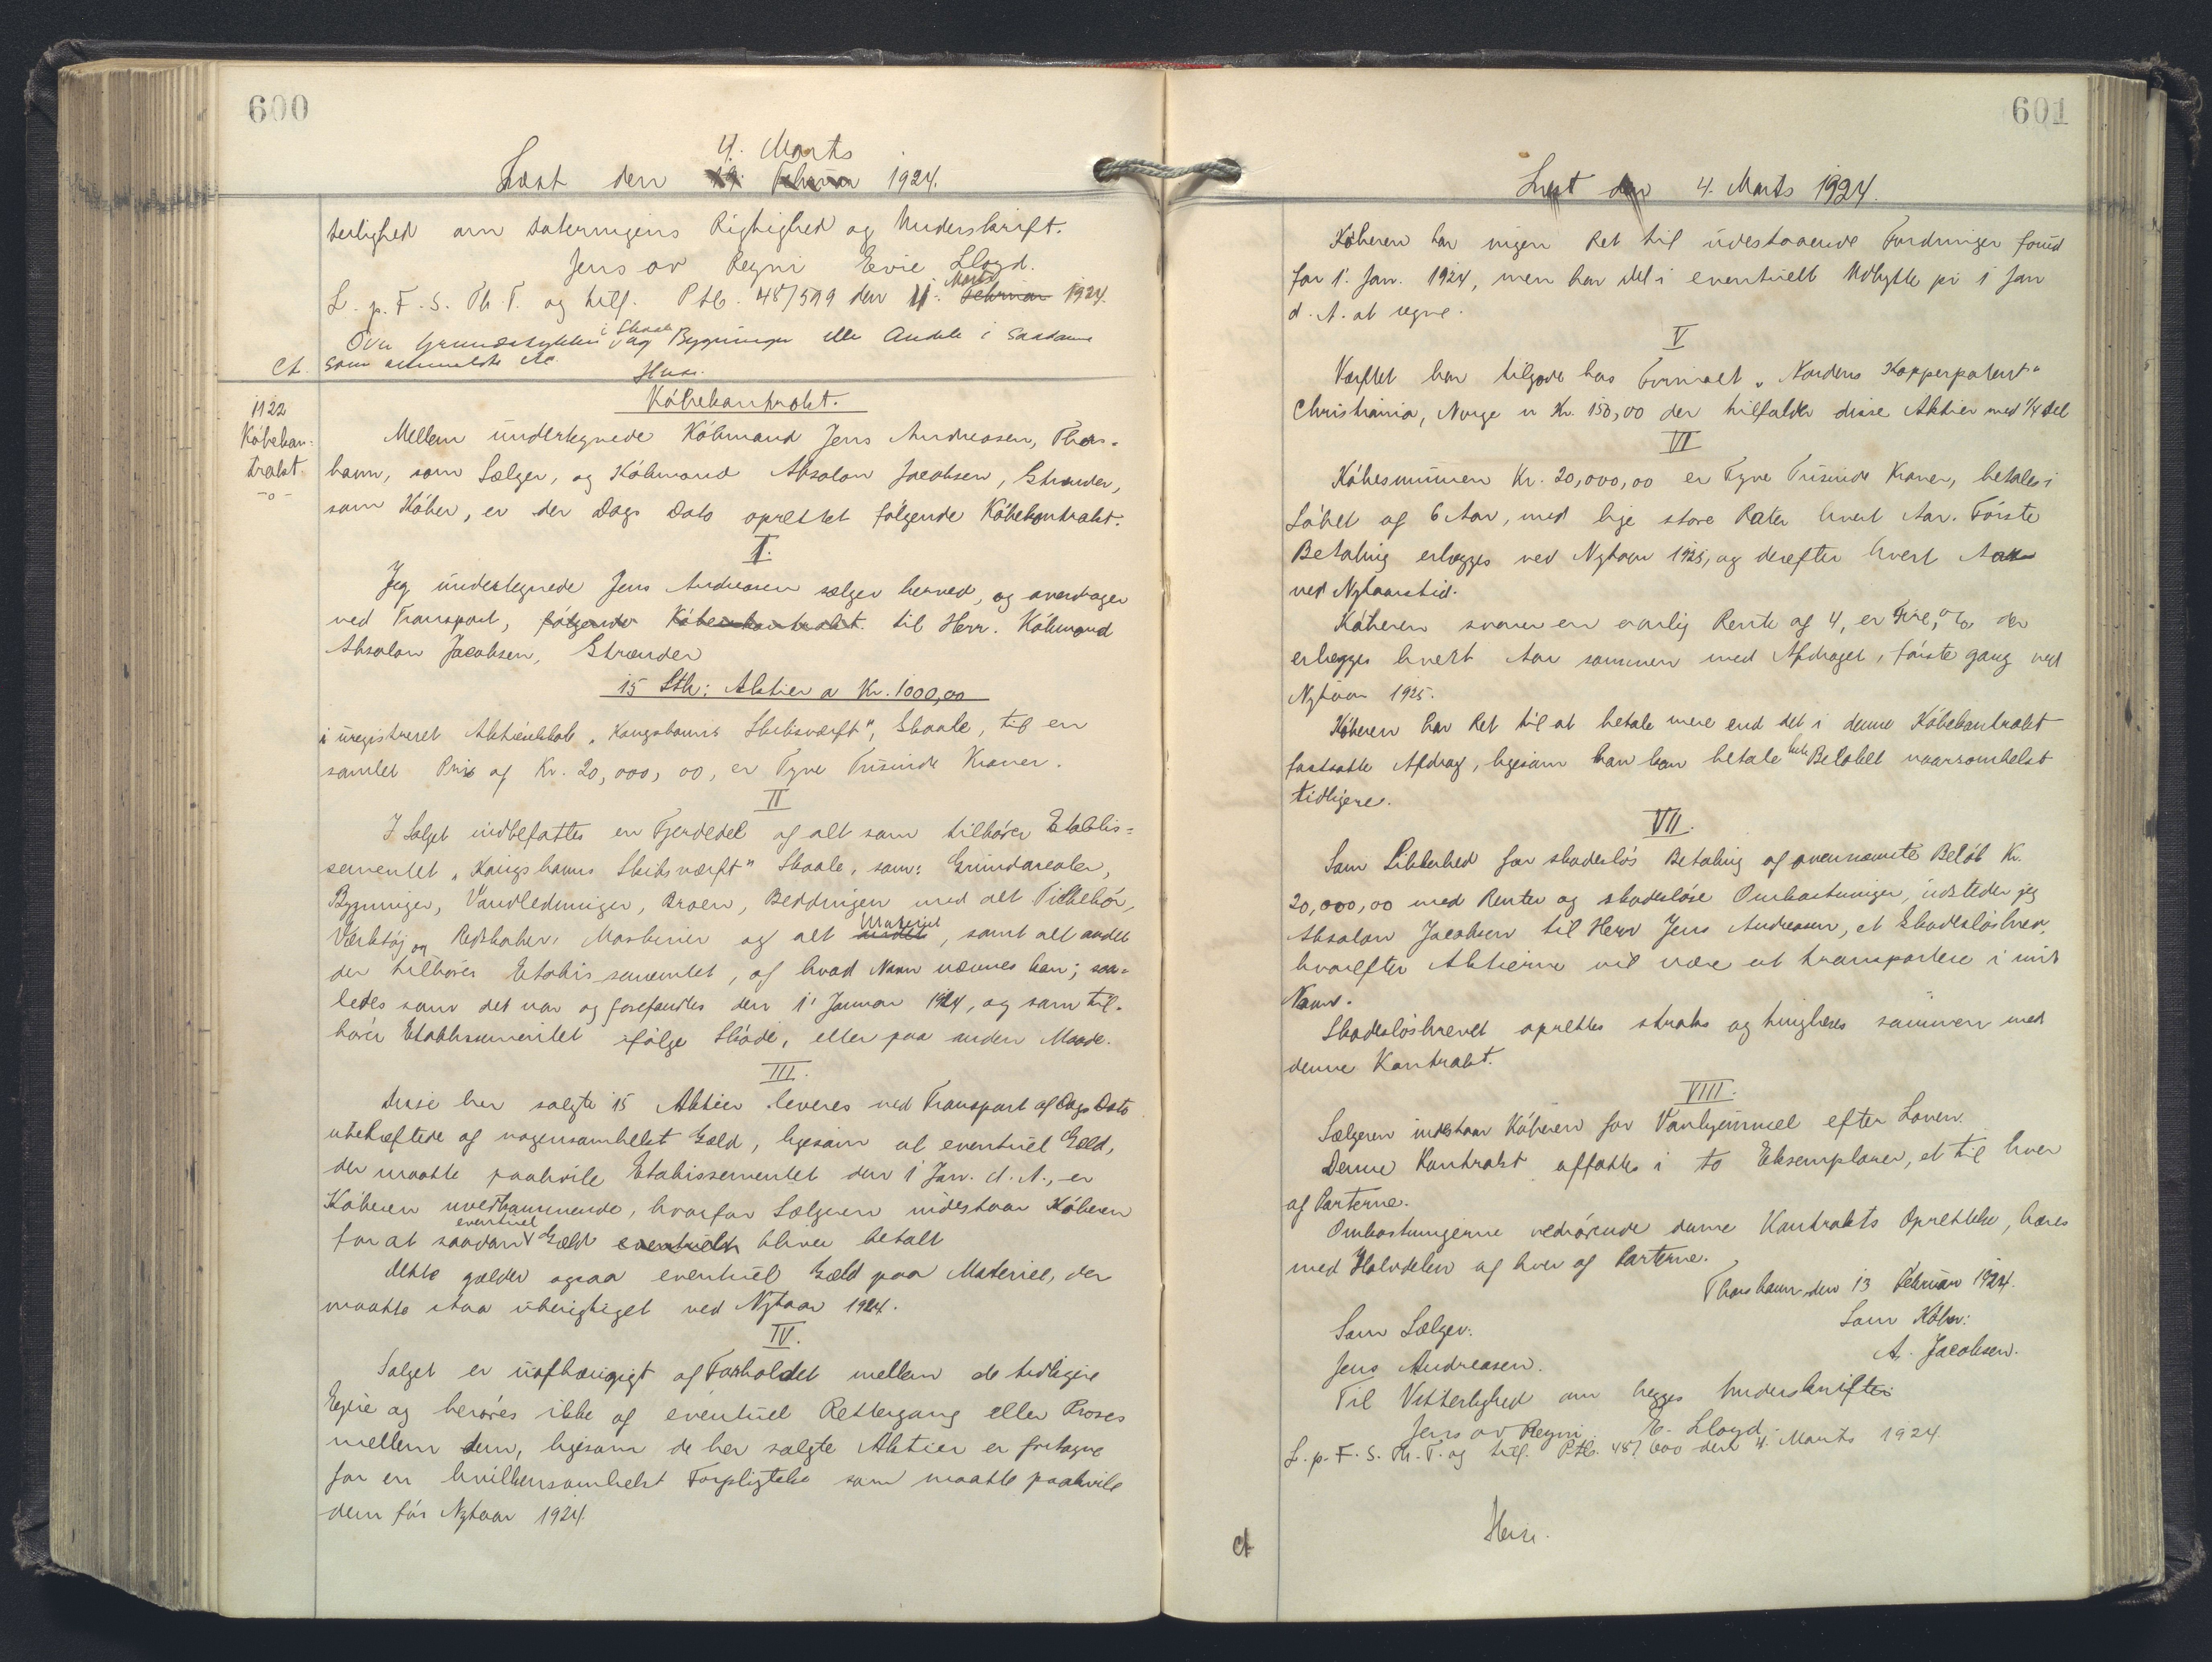 600
4. Marts
Læst den 19. Februar 1924.
terlighed om Dateringens Rigtighed og Underskrift.
Jens av Reyni Evie Lloyd.
L. p. F. S. Th. T. og tilf. Ptb. 48/599 den 4. Marts Februar 1924.
Over Grundstykker i Skaale og Bygninger eller Andele i saadanne
Ct. som anmeldte etc.
1122
Købekon-
trakt
-o-
Købekontrakt.
Mellem undertegnede Købmand Jens Andreasen, Thors-
havn, som Sælger, og Købmand Absalon Jacobsen, Strænder,
som Køber, er der Dags Dato oprettet følgende Købekontrakt.
I.
Jeg undertegnede Jens Andreasen sælger herved, og overdrager
ved Transport, følgende Købekontrakt. til Herr. Købmand
Absalon Jacobsen, Strænder
15 Stk: Aktier a Kr. 1000,00
i uregistreret Aktieselskab „Kongshavns Skibsværft", Skaale, til en
samlet Pris af Kr. 20,000,00, er Tyve Tusinde Kroner.
II
I Salget indbefattes en Fjerdedel af alt som tilhører Etablis=
sementet „Kongshavns Skibsværft" Skaale, som: Grundarealer,
Bygninger, Vandledninger, Broen, Beddingen med alt Tilbehør,
Værktøj og Redskaber, Maskiner og alt andet Materiel, samt alt andet
der tilhører Etabissementet, af hvad Navn nævnes kan; saa-
ledes som det var og forefandtes den 1' Januar 1924, og som til-
hører Etablissementet ifølge Skøde, eller paa anden Maade.
III.
Disse her solgte 15 Aktier leveres ved Transport af Dags Dato
ubehæftede af nogensomhelst Gæld, ligesom al eventuel Gæld,
der maatte paahvile Etabissementet den 1 Jan. d. A., er
Køberen uvedkommende, hvorfor Sælgeren indestaar Køberen
for at saadan eventuel Gæld eventuelt bliver betalt
Dette gælder ogsaa eventuel Gæld paa Materiel, der
maatte staa uberigtiget ved Nytaar 1924.
IV.
Salget er uafhængigt af Forholdet mellem de tidligere
Ejere og berøres ikke af eventuel Rettergang eller Proses
mellem dem, ligesom de her solgte Aktier er fritagne
for en hvilkensomhelst Forpligtelse som maatte paahvile
dem før Nytaar 1924.
601
Læst den 4. Marts 1924.
Køberen har ingen Ret til udestaaende Fordringer forud
for 1' Jan. 1924, men har del i eventuelt Udbytte pr 1 Jan
d. A. at regne.
V
Værftet har tilgode hos Firmaet „Nordens Kopperpatent"
Christiania, Norge Kr. 150,00 der tilfalder disse Aktier med 1/4 del
VI
Købesummen Kr. 20,000,00 er Tyve Tusinde Kroner, betales i
Løbet af 6 Aar, med lige store Rater hvert Aar. Første
Betaling erlægges ved Nytaar 1925, og derefter hvert Aar
ved Nytaarstid.
Køberen svarer en aarlig Rente af 4, er Fire, % der
erlægges hvert Aar sammen med Afdraget, første gang ved
Nytaar 1925.
Køberen har Ret til at betale mere end det i denne Købekontrakt
fastsatte Afdrag, ligesom han kan betale hele Beløbet naarsomhelst
tidligere.
VII.
Som Sikkerhed for skadesløs Betaling af ovennævnte Beløb Kr.
20,000,00 med Renter og skadesløse Omkostninger, udsteder jeg
Absalon Jacobsen til Herr Jens Andreasen, et Skadesløsbrev,
hvorefter Aktierne vil være at transportere i mit
Navn.
Skadesløsbrevet oprettes straks og tinglæses sammen med
denne Kontrakt.
VIII.
Sælgeren indestaar Køberen for Vanhjemmel efter Loven.
Denne Kontrakt affattes i to Eksemplarer, et til hver
af Parterne.
Omkostningerne vedrørende denne Kontrakts Oprettelse, bæres
med Halvdelen af hver af Parterne.
Thorshavn, den 13 Februar 1924.
Som Sælger. Som Køber:
Jens Andreasen. A. Jacobsen.
Til Vitterlighed om begges Underskrifter
Jens av Reyni E. Lloyd.
L. p. F. S. Th. T. og tilf. Ptb. 48/600 den 4. Marts 1924
Ct.